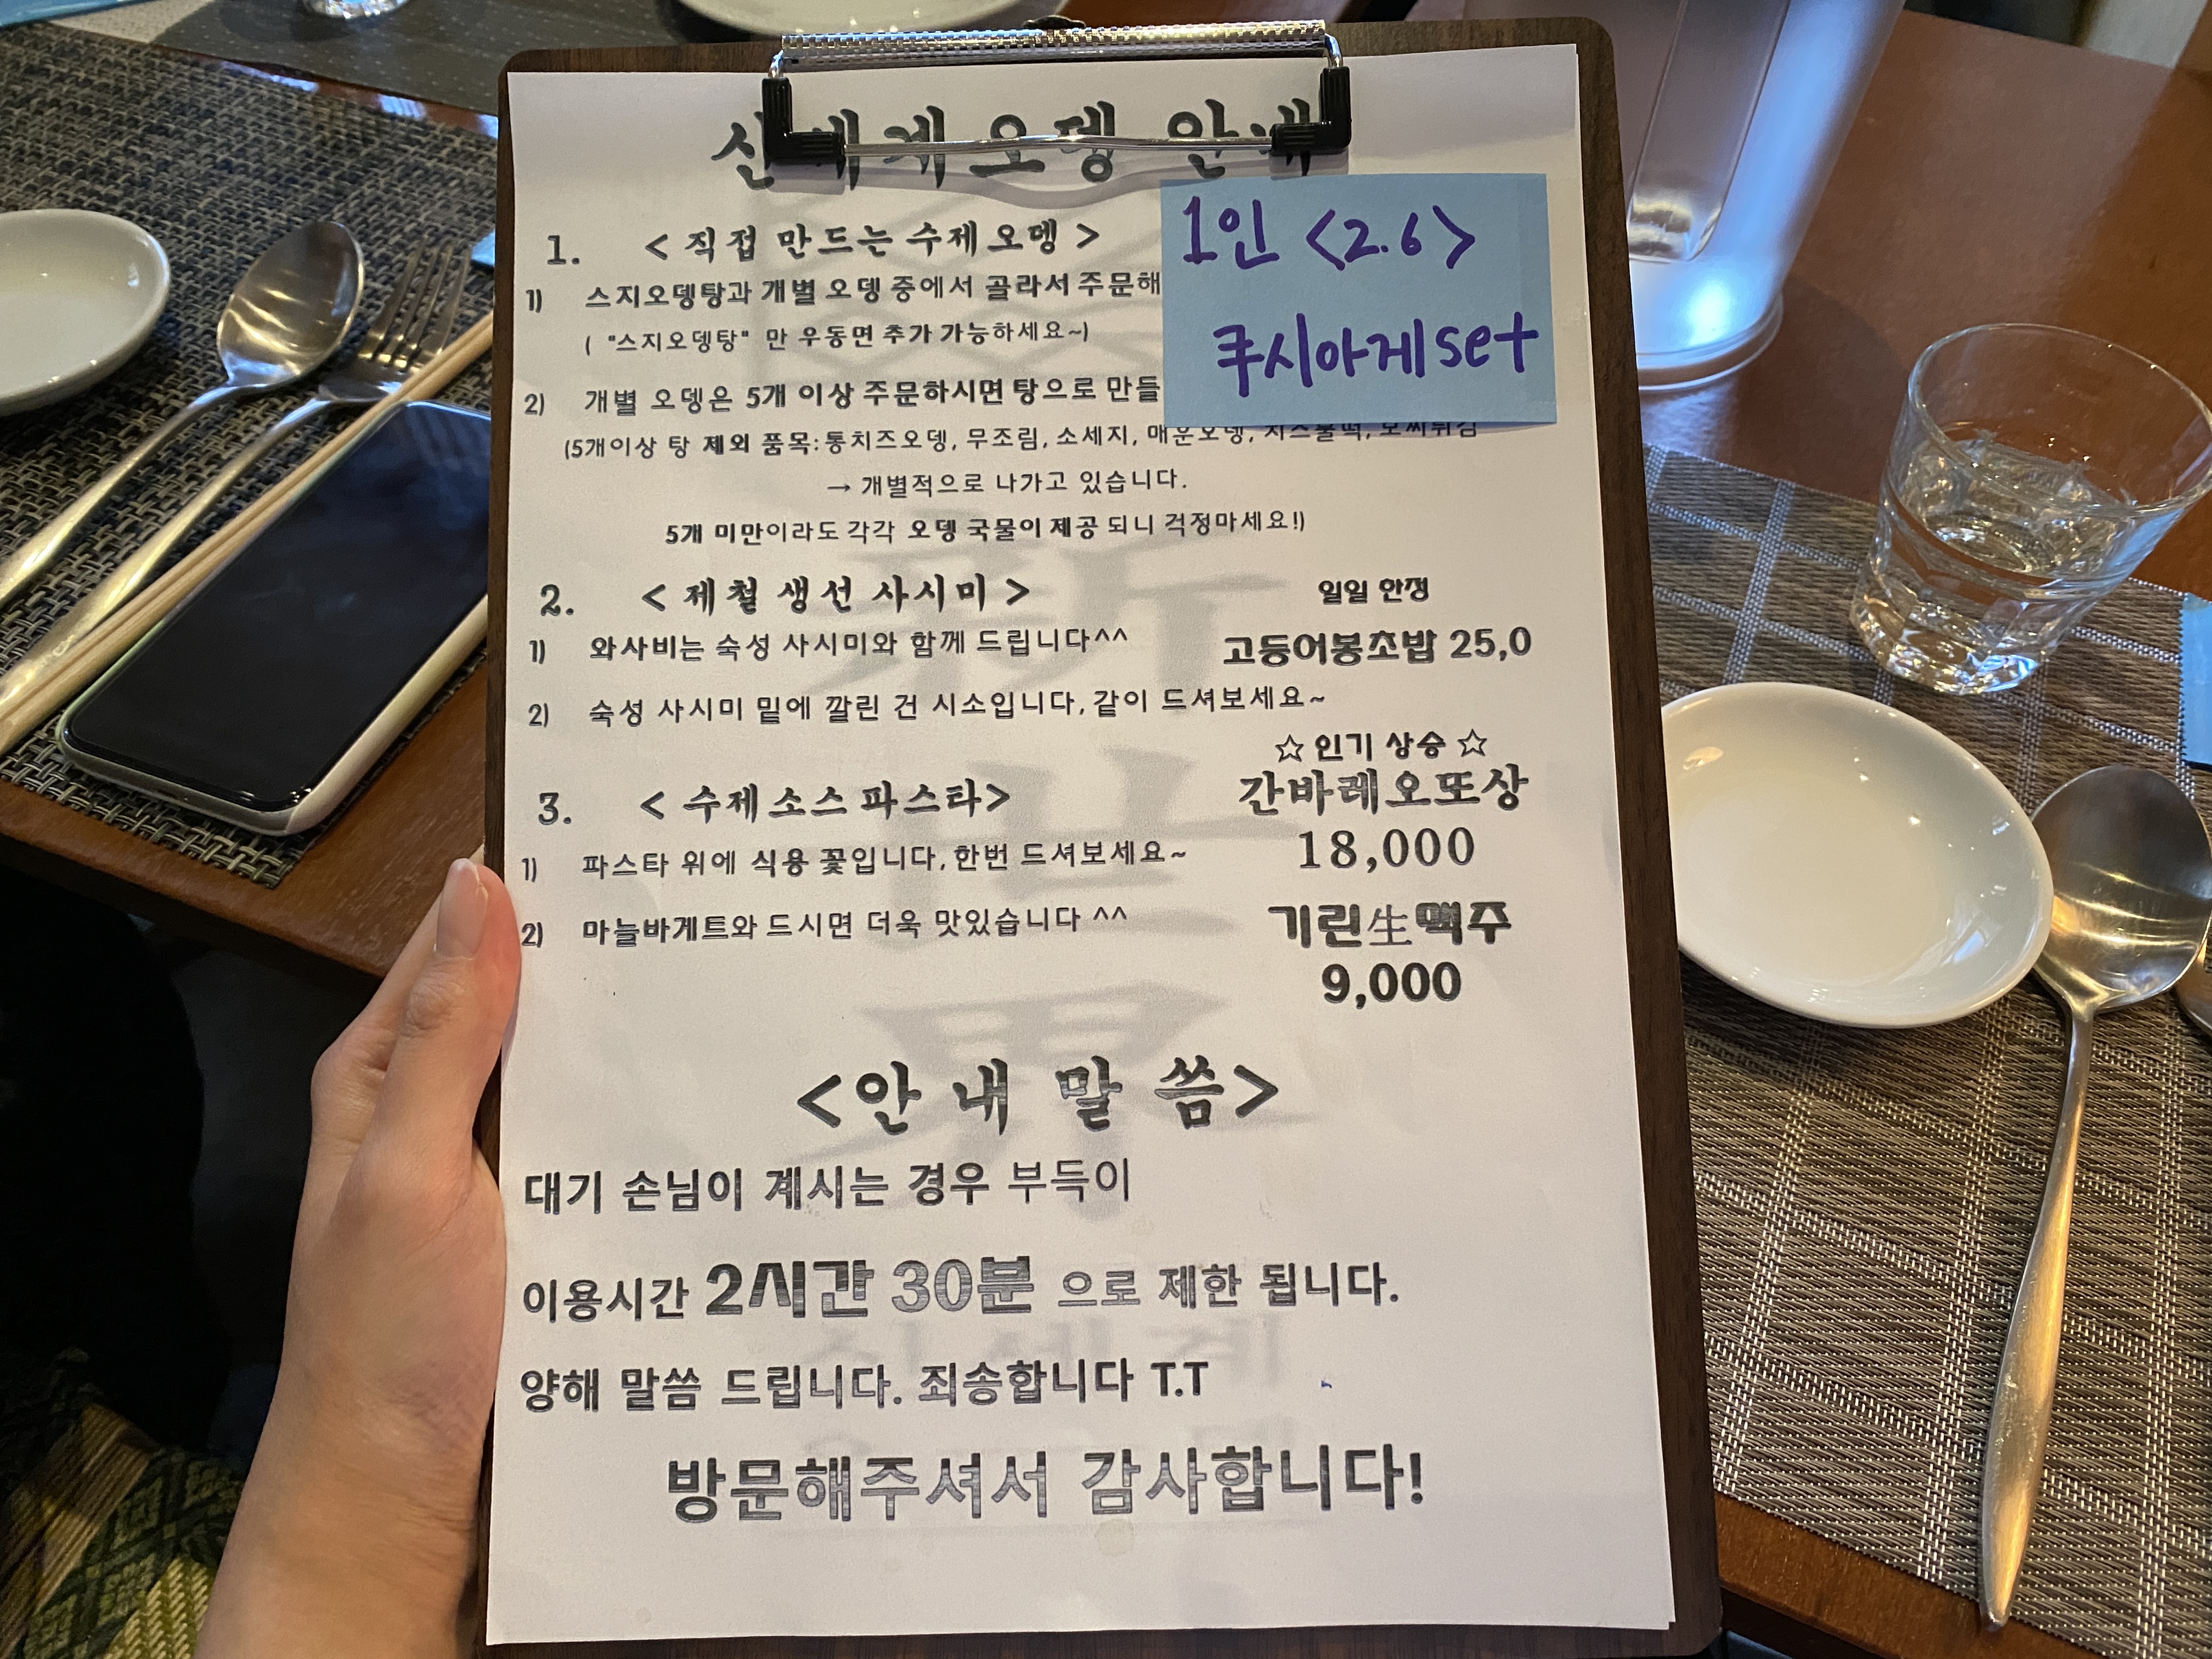 신세계오뎅 안내
1. < 직접 만드는 수제오뎅 >
1인 <2.6>
쿠시아게set
1) 스지오뎅탕과 개별 오뎅 중에서 골라서 주문해
( "스지오뎅탕" 만 우동면 추가 가능하세요~)
2) 개별 오뎅은 5개 이상 주문하시면 탕으로 만들
(5개이상 탕 제외 품목:통치즈오뎅, 무조림, 소세지, 매운오뎅,
→ 개별적으로 나가고 있습니다.
5개 미만이라도 각각 오뎅 국물이 제공 되니 걱정마세요!)
2. < 제철 생선 사시미 >
일일 한정
1) 와사비는 숙성 사시미와 함께 드립니다^^
고등어봉초밥 25,0
2) 숙성 사시미 밑에 깔린 건 시소입니다, 같이 드셔보세요~
☆ 인기 상승 ☆
3. < 수제소스파스타>
간바레오또상
18,000
1) 파스타 위에 식용 꽃입니다, 한번 드셔보세요~
2) 마늘바게트와 드시면 더욱 맛있습니다 ^^
기린生맥주
9,000
<안 내 말 씀>
대기 손님이 계시는 경우 부득이
이용시간 2시간 30분 으로 제한 됩니다.
양해 말씀 드립니다. 죄송합니다 T.T
방문해주셔서 감사합니다!